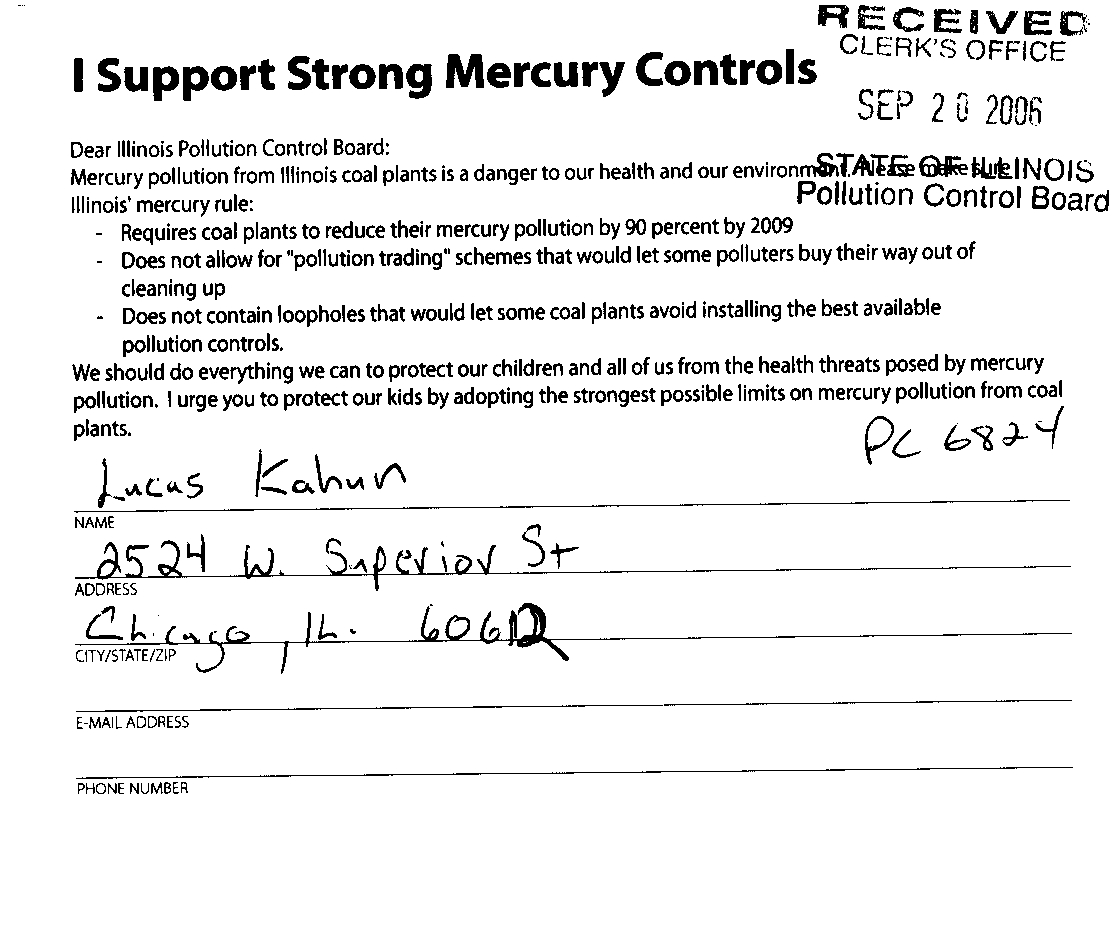 RECEIVED
CLERK'S OFFICE
I Support Strong Mercury Controls
SEP 20 2006
Dear Illinois Pollution Control Board:
Mercury pollution from Illinois coal plants is a danger to our health and our environment. Please make sure
STATE OF ILLINOIS
Pollution Control Board
Illinois' mercury rule:
- Requires coal plants to reduce their mercury pollution by 90 percent by 2009
- Does not allow for "pollution trading" schemes that would let some polluters buy their way out of
cleaning up
- Does not contain loopholes that would let some coal plants avoid installing the best available
pollution controls.
We should do everything we can to protect our children and all of us from the health threats posed by mercury
pollution. I urge you to protect our kids by adopting the strongest possible limits on mercury pollution from coal
plants.
PC 6824
Lucas Kahun
NAME
2524 W. Superior St
ADDRESS
Chicago, IL. 60612
CITY/STATE/ZIP
E-MAIL ADDRESS
PHONE NUMBER